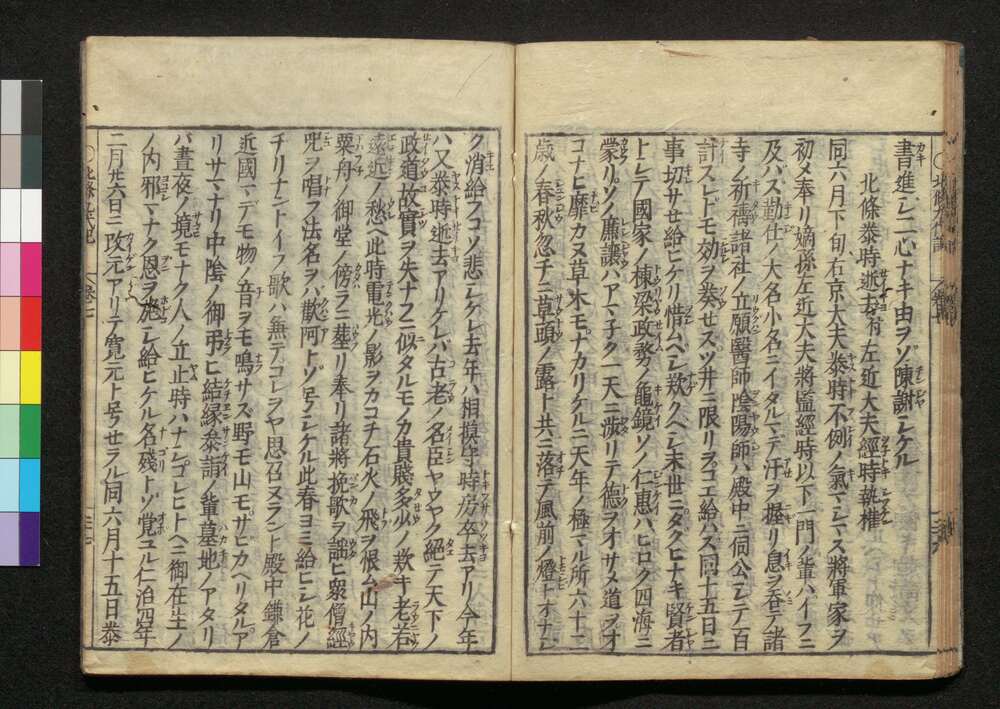 書進シ二心ナキ由ヲゾ陳謝シケル
北條泰時逝去 付 左近大夫經時執權
同六月下旬右京大夫泰時不例ノ氣マシマス將軍家ヲ
初メ奉リ嫡孫左近大夫將監經時以下一門ノ輩ハイフニ
及ハズ勤仕ノ大名小名ニイタルマデ汗ヲ握リ息ヲ呑テ諸
寺ノ祈禱諸社ノ立願醫師陰陽師ハ殿中ニ伺公シテ百
計スレドモ効ヲ奏セスツ井ニ限リヲコエ給ハス同十五日ニ
事切サセ給ヒケリ惜ムベシ歎クヘシ末世ニタクヒナキ賢者
上シテ國家ノ棟梁政務ノ龜鏡ソノ仁惠ハヒロク四海ニ
蒙リソノ廉讓ハアマ子ク一天ニ滂リテ德ヲオサメ道ヲオ
コナヒ靡カヌ草木モナカリケルニ天年ノ極マル所六十二
歳ノ春秋忽チニ草頭ノ露ト共ニ落テ風前ノ燈トオナシ
ク消給フコソ悲シケレ去年ハ相模守時房卒去アリ今年
ハ又泰時逝去アリケレバ古老ノ名臣ヤウヤク絶テ天下ノ
政道故實ヲ失ナフニ似タルモノカ貴賤多少ノ歎キ老若
遠近ノ愁ヘ此時電光ノ影ヲカコチ石火ノ飛ヲ恨ム山ノ内
粟舟ノ御堂ノ傍ラニ葬リ奉リ諸將挽歌ヲ謡ヒ衆僧經
咒ヲ唱フ法名ヲハ歡阿トゾ号シケル此春ヨミ給ヒシ花ノ
チリナントイフ歌ハ無テコレヲヤ思召ヌラント殿中鎌倉
近國マデモ物ノ音ヲモ鳴サズ野モ山モサヒカヘリタルア
リサマナリ中陰ノ御弔ヒ結縁參詣ノ輩墓地ノアタリ
ハ晝夜ノ境モナク人ノ立止時ハナシコレヒトヘニ御在生ノ
ノ内邪マナク恩ヲ施シ給ヒケル名殘トゾ覚エル仁治四年
二月廿六日ニ改元アリテ寛元ト号セラル同六月十五日泰